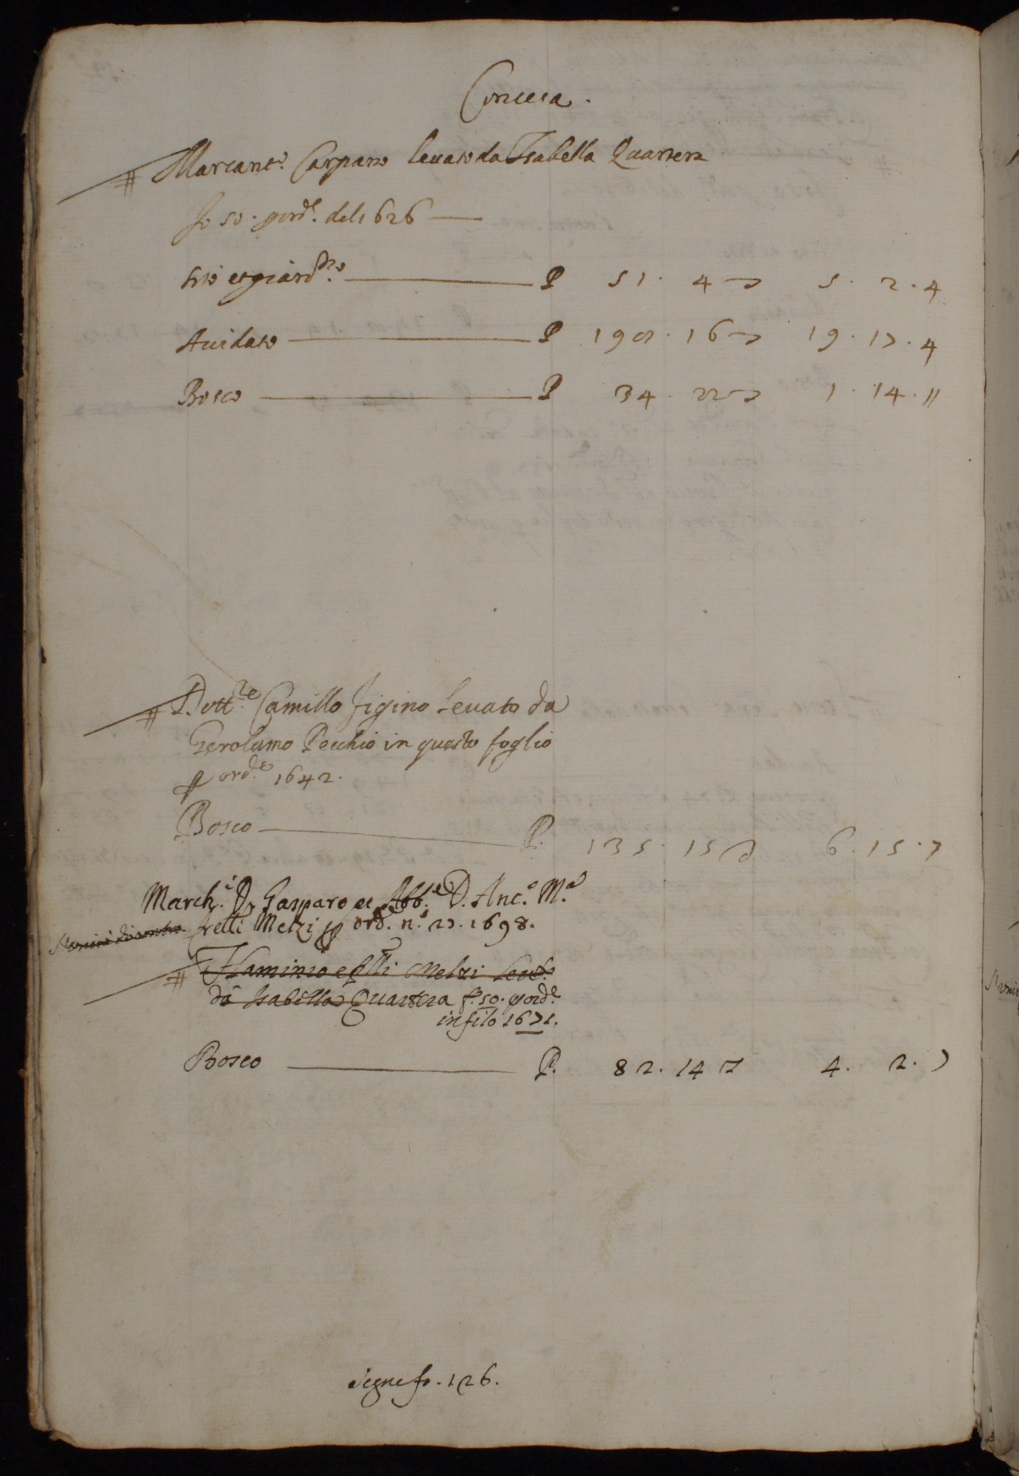 Concesa.
Marcant.º Carpano levato da Isabella Quartera
fo 50. per ord.e del 1626
Sito et giard.no P 51. 4 5. 2. 4
Avidato P 198. 16 19. 17. 4
Bosco P 34. 22 1. 14. 11
Dott.re Camillo figino levato da
Gerolamo Pecchio in questo foglio
per ord.e 1642.
Bosco P. 135. 15 6. 15. 7
March.i D. Gasparo et Abb.e D. Ant.o M.a
frelli Melzi per ord. n.o 27. 1698.
Flaminio e flli Melzi Levat.
da Isabella Quartera fo. 50. per ord.e
in filo 1671.
Bosco P. 82. 14 4. 2. 7
segue fo. 126.